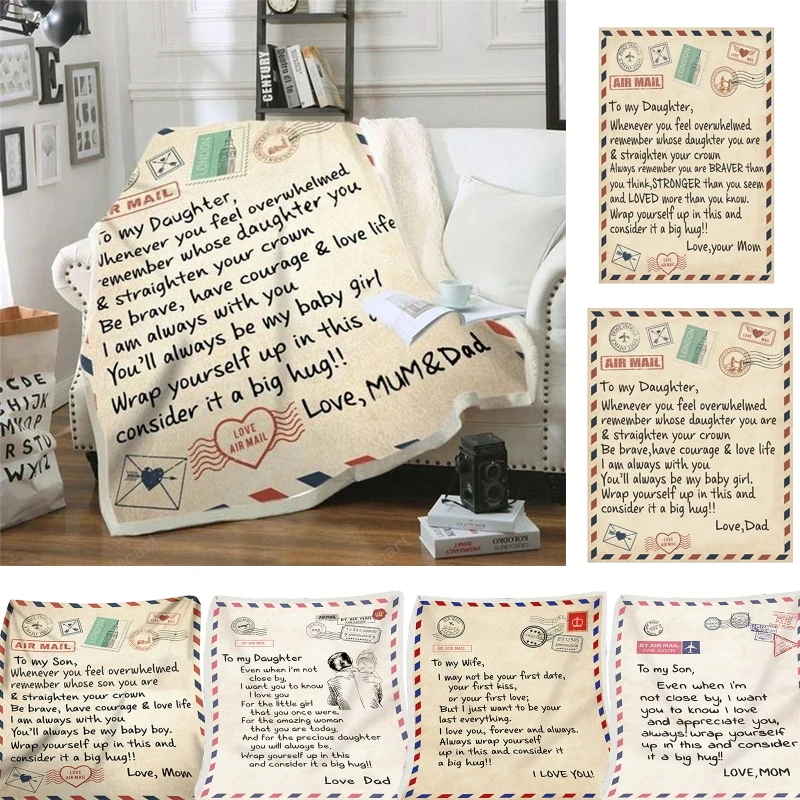 CENTURY
LONDON
R MAIL
To my Daughter,
Whenever you feel overwhelmed
remember whose daughter you
& straighten your crown
Be brave, have courage & love life
I am always with you
You'll always be my baby girl
Wrap yourself up in this
consider it a big hug!!
Love, MUM&Dad
LOVE
AIR MAIL
LONDON
AIR MAIL
To my Daughter,
Whenever you feel overwhelmed
remember whose daughter you are
& straighten your crown
Always remember you are BRAVER than
you think,STRONGER than you seem
and LOVED more than you know.
Wrap yourself up in this and
consider it a big hug!!
Love,your Mom
LOVE
AIR MAIL
LONDON
AIR MAIL
To my Daughter,
Whenever you feel overwhelmed
remember whose daughter you are
& straighten your crown
Be brave,have courage & love life
I am always with you
You'll always be my baby girl.
Wrap yourself up in this and
consider it a big hug!!
Love,Dad
LOVE
AIR MAIL
AIR MAIL
To my Son,
Whenever you feel overwhelmed
remember whose son you are
& straighten your crown
Be brave, have courage & love life
I am always with you
You'll always be my baby boy.
Wrap yourself up in this and
consider it a big hug!!
Love, Mom
To my Daughter
Even when i'm not
close by,
I want you to know
I love you
For the little girl
that you once were,
For the amazing woman
that you are today.
And for the precious daughter
you will always be,
Wrap yourself up in this
and consider it a big hug!!
Love Dad
To my Wife,
I may not be your first date,
your first kiss,
or your first love;
But I just want to be your
last everything.
I love you, forever and always.
Always wrap yourself
up in this and consider it
a big hug!!
I LOVE YOU!
BY AIR MAIL
PAR AVION
To my Son,
Even when i'm
not close by, I want
you to know I love
and appreciate you,
always! wrap yourself
up in this and consider
it a big hug!!
Love,MOM